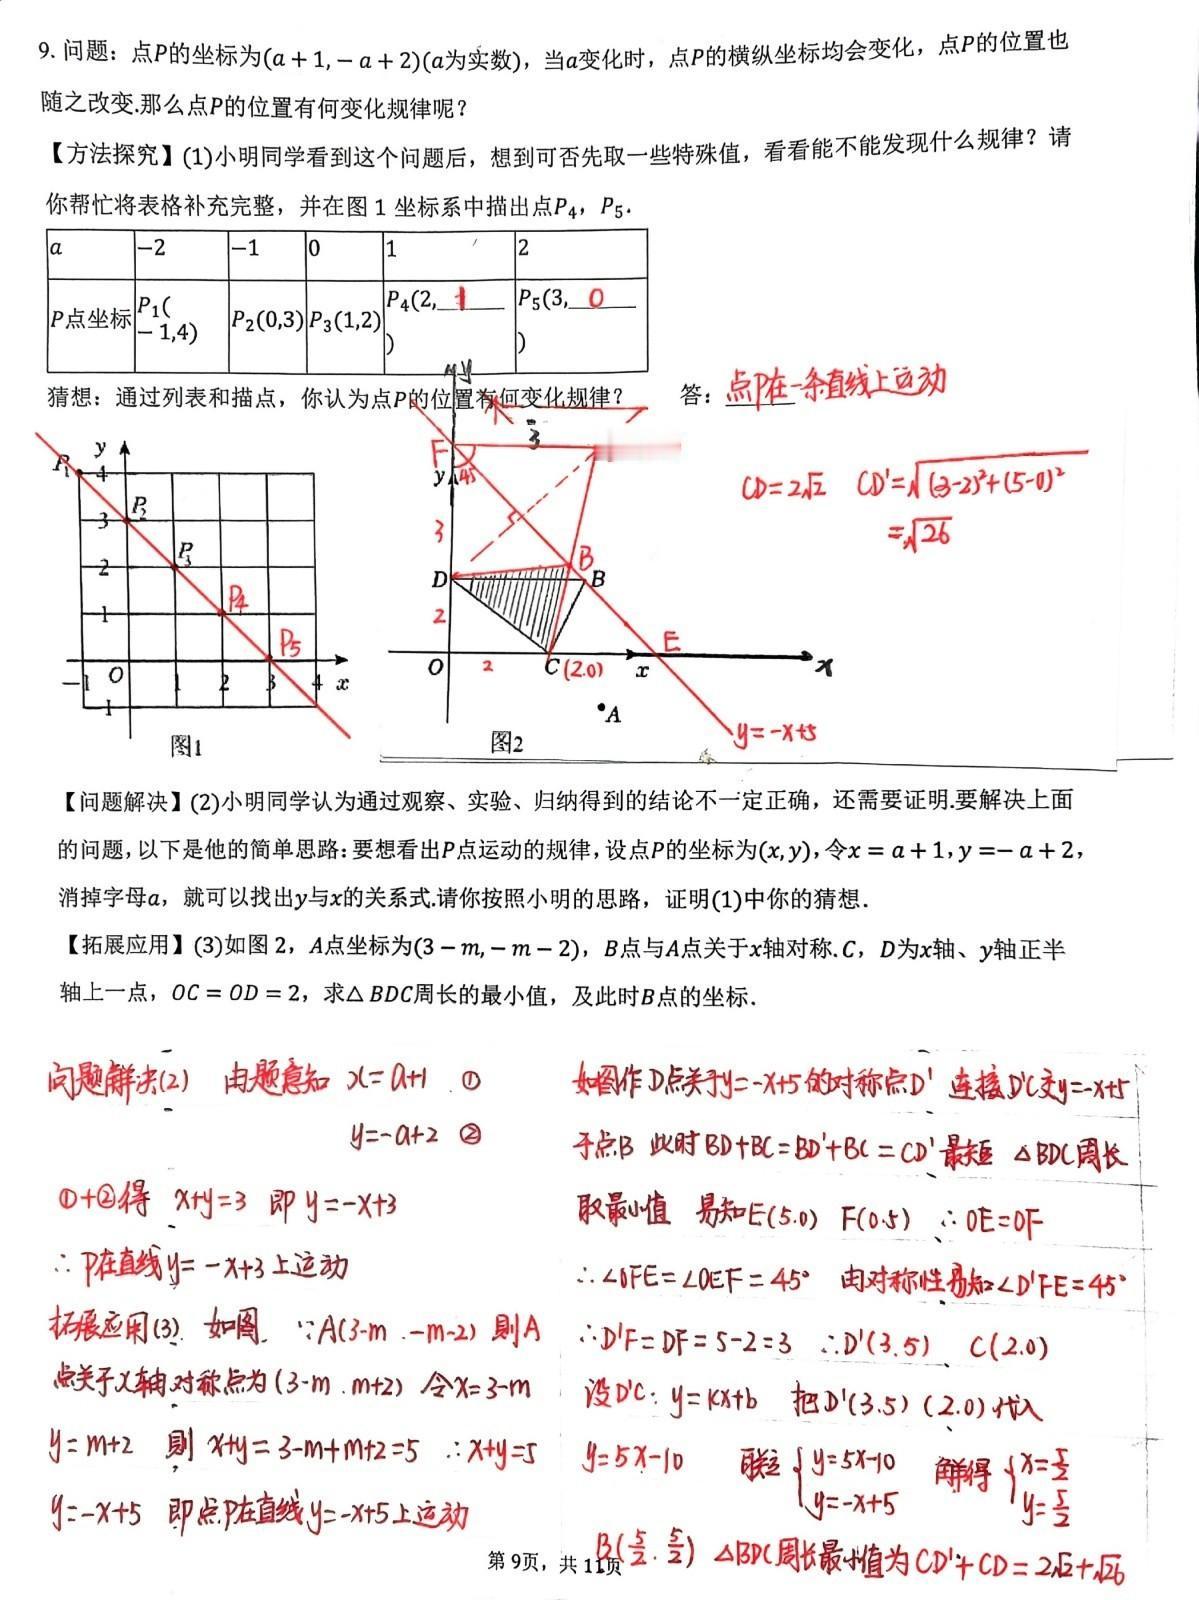 9. 问题：点P的坐标为(a+1,-a+2)(a为实数)，当a变化时，点P的横纵坐标均会变化，点P的位置也
随之改变.那么点P的位置有何变化规律呢？
【方法探究】(1)小明同学看到这个问题后，想到可否先取一些特殊值，看看能不能发现什么规律？请
你帮忙将表格补充完整，并在图1坐标系中描出点P₄，P₅.
a -2 -1 0 1 2
P点坐标 P₁(-1,4) P₂(0,3) P₃(1,2) P₄(2, 1 ) P₅(3, 0 )
猜想：通过列表和描点，你认为点P的位置有何变化规律？ 答：点P在一条直线上运动
P₁ y 4
3 P₂
2 P₃
1 P₄
P₅
-1 O 1 2 3 4 x
-1
图1
y
3
F 45
y
3
D B B
2
E
O 2 C (2.0) x x
A
y=-x+5
图2
CD=2√2 CD'=√(3-2)²+(5-0)²
=√26
【问题解决】(2)小明同学认为通过观察、实验、归纳得到的结论不一定正确，还需要证明.要解决上面
的问题，以下是他的简单思路：要想看出P点运动的规律，设点P的坐标为(x,y)，令x=a+1，y=-a+2，
消掉字母a，就可以找出y与x的关系式.请你按照小明的思路，证明(1)中你的猜想.
【拓展应用】(3)如图2，A点坐标为(3-m,-m-2)，B点与A点关于x轴对称.C，D为x轴、y轴正半
轴上一点，OC=OD=2，求△BDC周长的最小值，及此时B点的坐标.
问题解决(2) 由题意知 x=a+1 ①
y=-a+2 ②
①+②得 x+y=3 即 y=-x+3
∴P在直线y=-x+3上运动
拓展应用(3) 如图. ∵A(3-m.-m-2) 则A
点关于X轴对称点为(3-m.m+2) 令x=3-m
y=m+2 则 x+y=3-m+m+2=5 ∴x+y=5
y=-x+5 即点P在直线y=-x+5上运动
如图作D点关于y=-x+5的对称点D' 连接D'C交y=-x+5
于点B 此时BD+BC=BD'+BC=CD'最短 △BDC周长
取最小值 易知E(5.0) F(0.5) ∴OE=OF
∴∠OFE=∠OEF=45° 由对称性易知∠D'FE=45°
∴D'F=DF=5-2=3 ∴D'(3.5) C(2.0)
设D'C：y=kx+b 把D'(3.5) (2.0)代入
y=5x-10 联立{y=5x-10 y=-x+5 解得{x=5/2 y=5/2
B(5/2.5/2) △BDC周长最小值为CD'+CD=2√2+√26
第9页，共11页